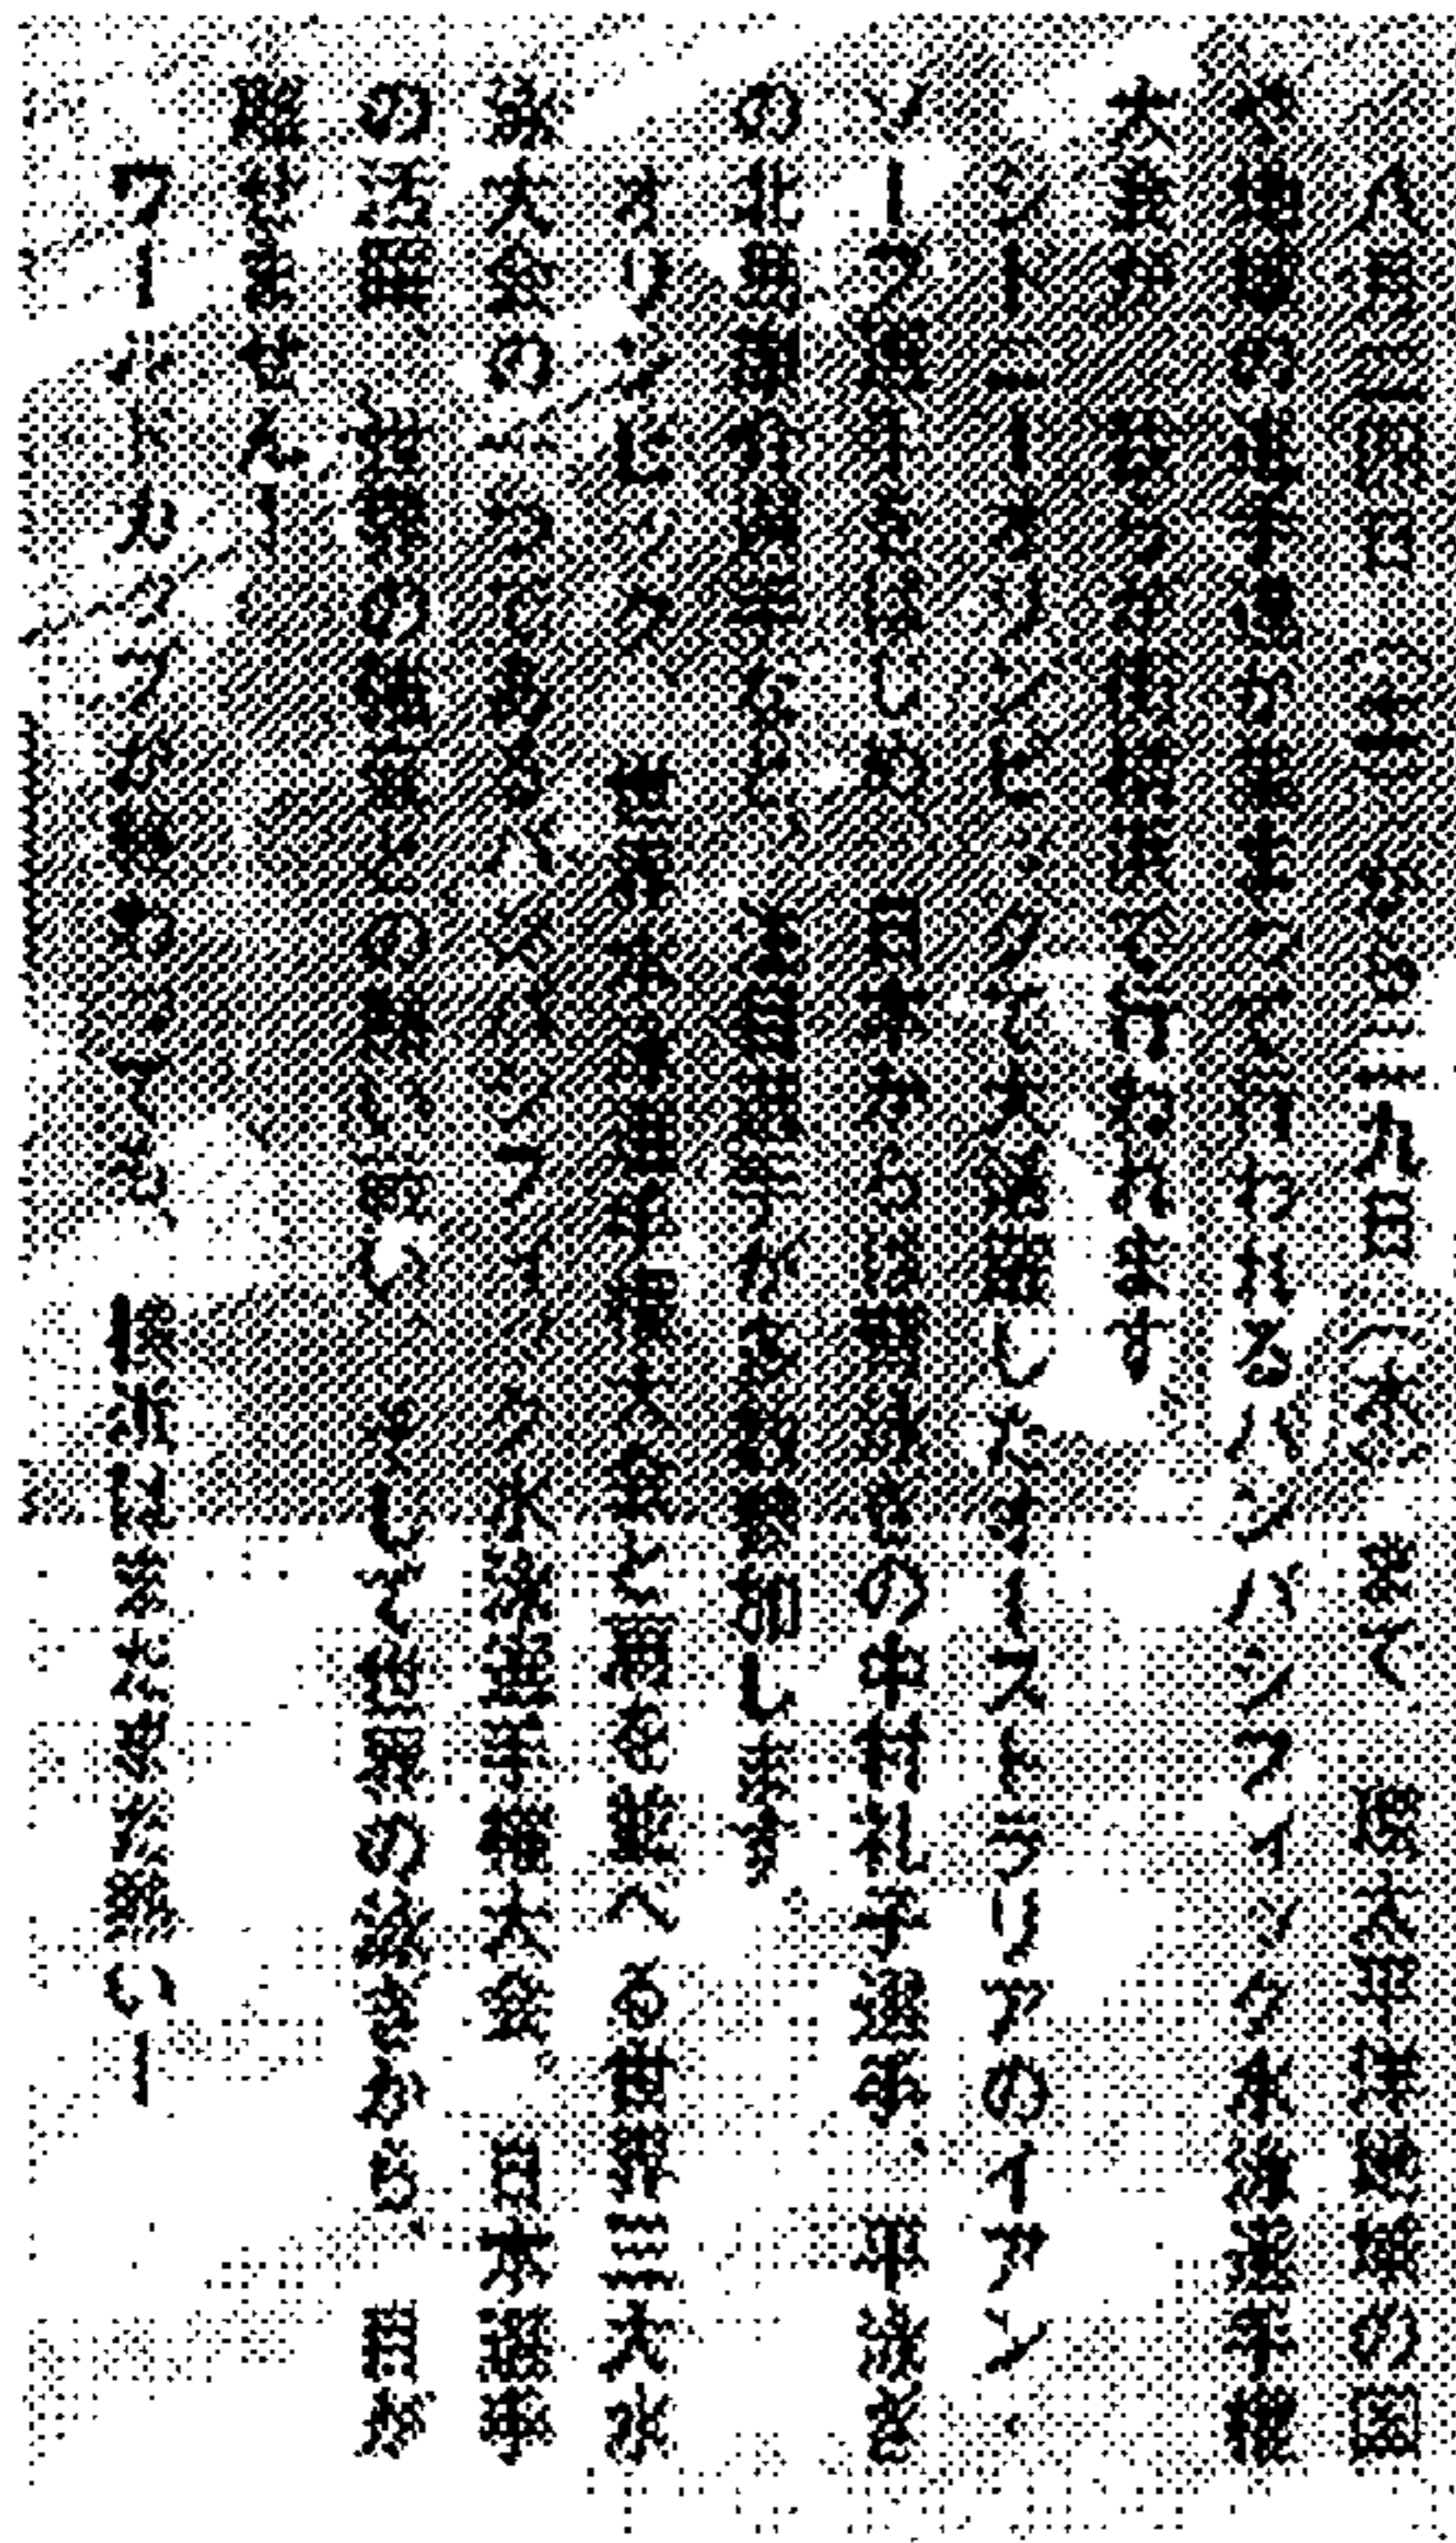 八月二四日(土)から二九日(木)まで、環太平洋地域の国
や地域の選手達が集まって行われるパンパシフィック水泳選手権
大会が、我らが横浜国際プールで行われます
シドニーオリンピックで大活躍したオーストラリアのイアン・
ソープ選手をはじめ、日本からは期待の中村礼子選手、平泳ぎ
の北島康介選手など、有名選手が
オリンピック、世界水泳選手権大会と肩を並べる世界三大水
泳大会の一つであるパンパシフィック水泳選手権大会。日本選手
の活躍、世界の強豪との熱い闘い、そして世界の泳ぎから、目が
離せません!
ワールドカップが終わっても、横浜はまだまだ熱い!